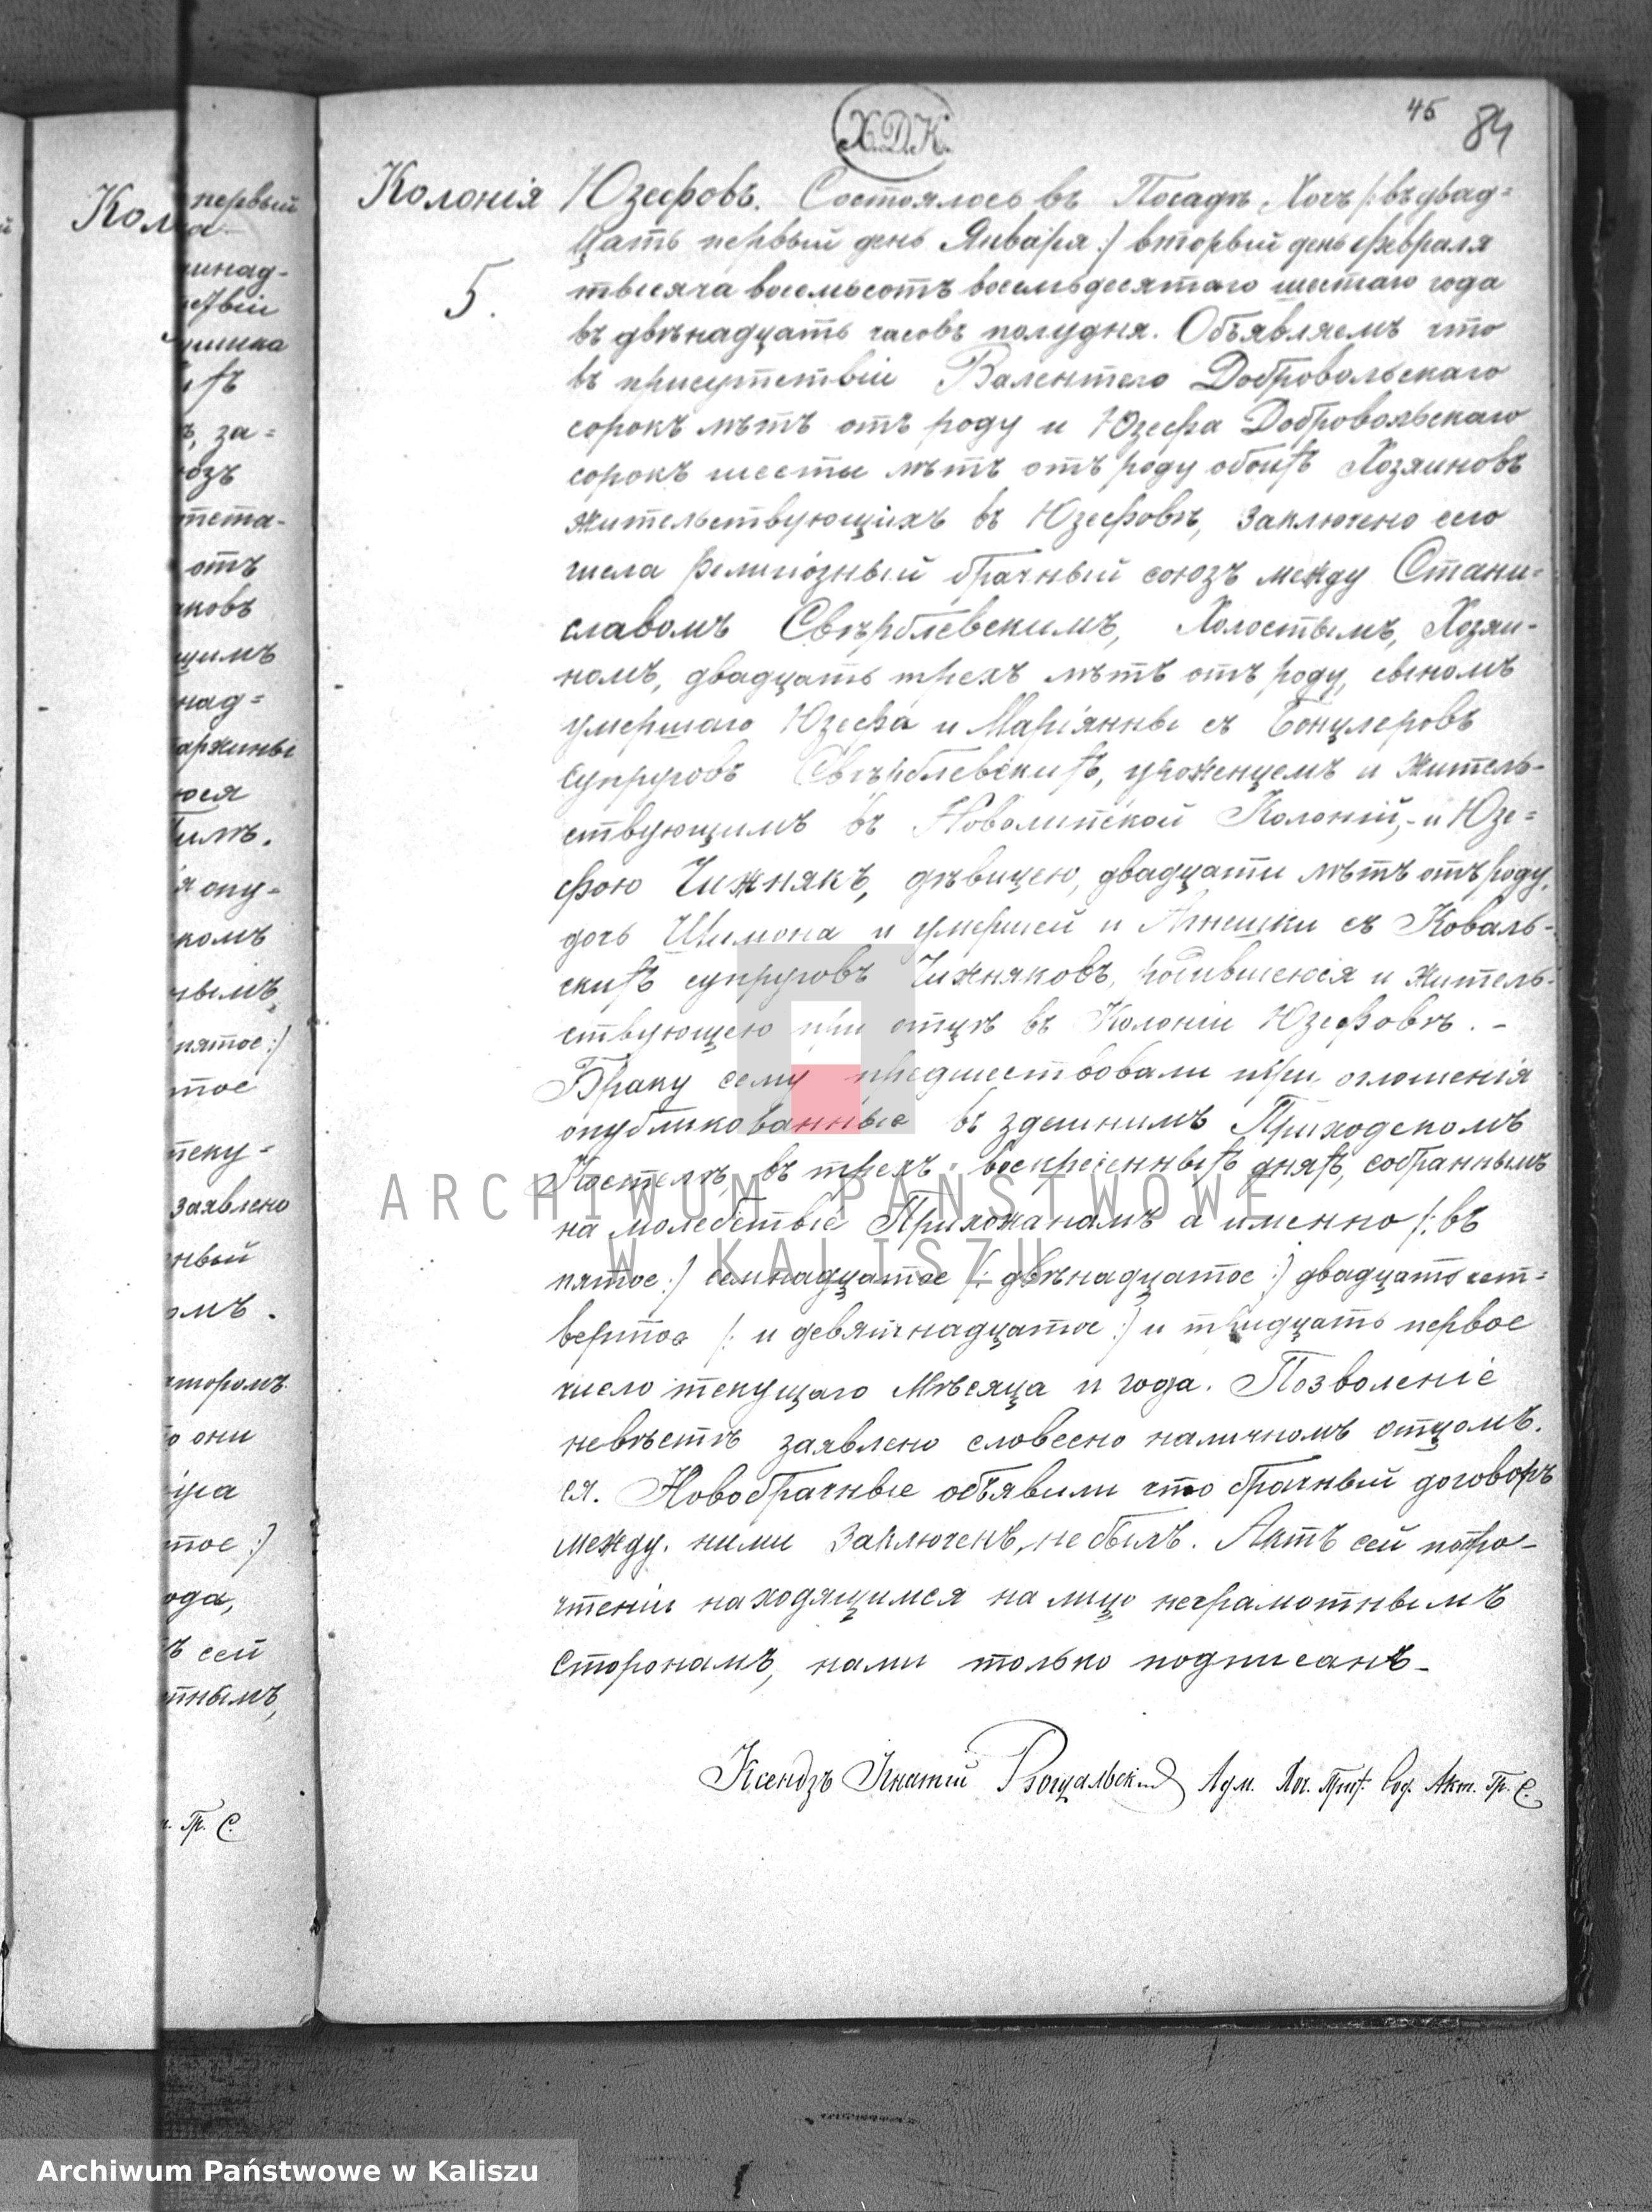 45 84
Х.Д.К.
Колонія Юзефовъ. Состоялось въ Посадѣ Хочъ /: въ двад=
5. цать первый день Января :/ вторый день февраля
тысяча восемьсотъ восемьдесятаго шестаго года
въ двѣнадцать часовъ полудня. Объявляемъ что
въ присутствіи Валентего Добровольскаго
сорокъ лѣтъ отъ роду и Юзефа Добровольскаго
сорокъ шесты лѣтъ отъ роду обоихъ Хозяиновъ
жительствующихъ въ Юзефовѣ, заключено сего
числа религіозный брачный союзъ между Стани=
славомъ Свѣрблевскимъ, Холостымъ, Хозяи-
номъ, двадцать трехъ лѣтъ отъ роду, сыномъ
умершаго Юзефа и Маріянны съ Бонцлеровъ
супруговъ Свѣрблевскихъ, уроженцемъ и житель-
ствующимъ въ Новолипской Колоніи,- и Юзе=
фою Чижнякъ, дѣвицею, двадцати лѣтъ отъ роду,
дочь Шимона и умершей и Агнешки съ Коваль-
скихъ супруговъ Чижняковъ, родившеюся и житель-
ствующею при отцѣ въ Колоніи Юзефовѣ. -
Браку сему предшествовали при оглошенія
опубликованные въ здешнимъ Приходскомъ
Костелѣ, въ трехъ воскресенныхъ дняхъ, собраннымъ
на молебствіе Прихожанамъ а именно /: въ
пятое :/ семнадцатое /: двѣнадцатое :/ двадцать чет=
вертое /: и девятнадцатое :/ и тридцать первое
число текущаго Мѣсяца и года. Позволеніе
невѣстѣ заявлено словесно наличномъ отцомъ.
ея. Новобрачные объявили что брачный договоръ
между ними заключенъ, не былъ. Актъ сей попро-
чтеніи находящимся на лицо неграмотнымъ
сторонамъ, нами только подписанъ-
Ксендзъ Игнатій Адм. Хоч. Прих. Сод. Акт. Гр. С.
Кол
первый
а
надъ-
отъ
ковъ
щимъ
над=
юся
я опу-
комъ
пятое :/
тое
теку=
заявлено
о они
тое :/
ода,
ъ сей
тнымъ,
Гр. С.
ARCHIWUM PAŃSTWOWE
W KALISZU
Archiwum Państwowe w Kaliszu